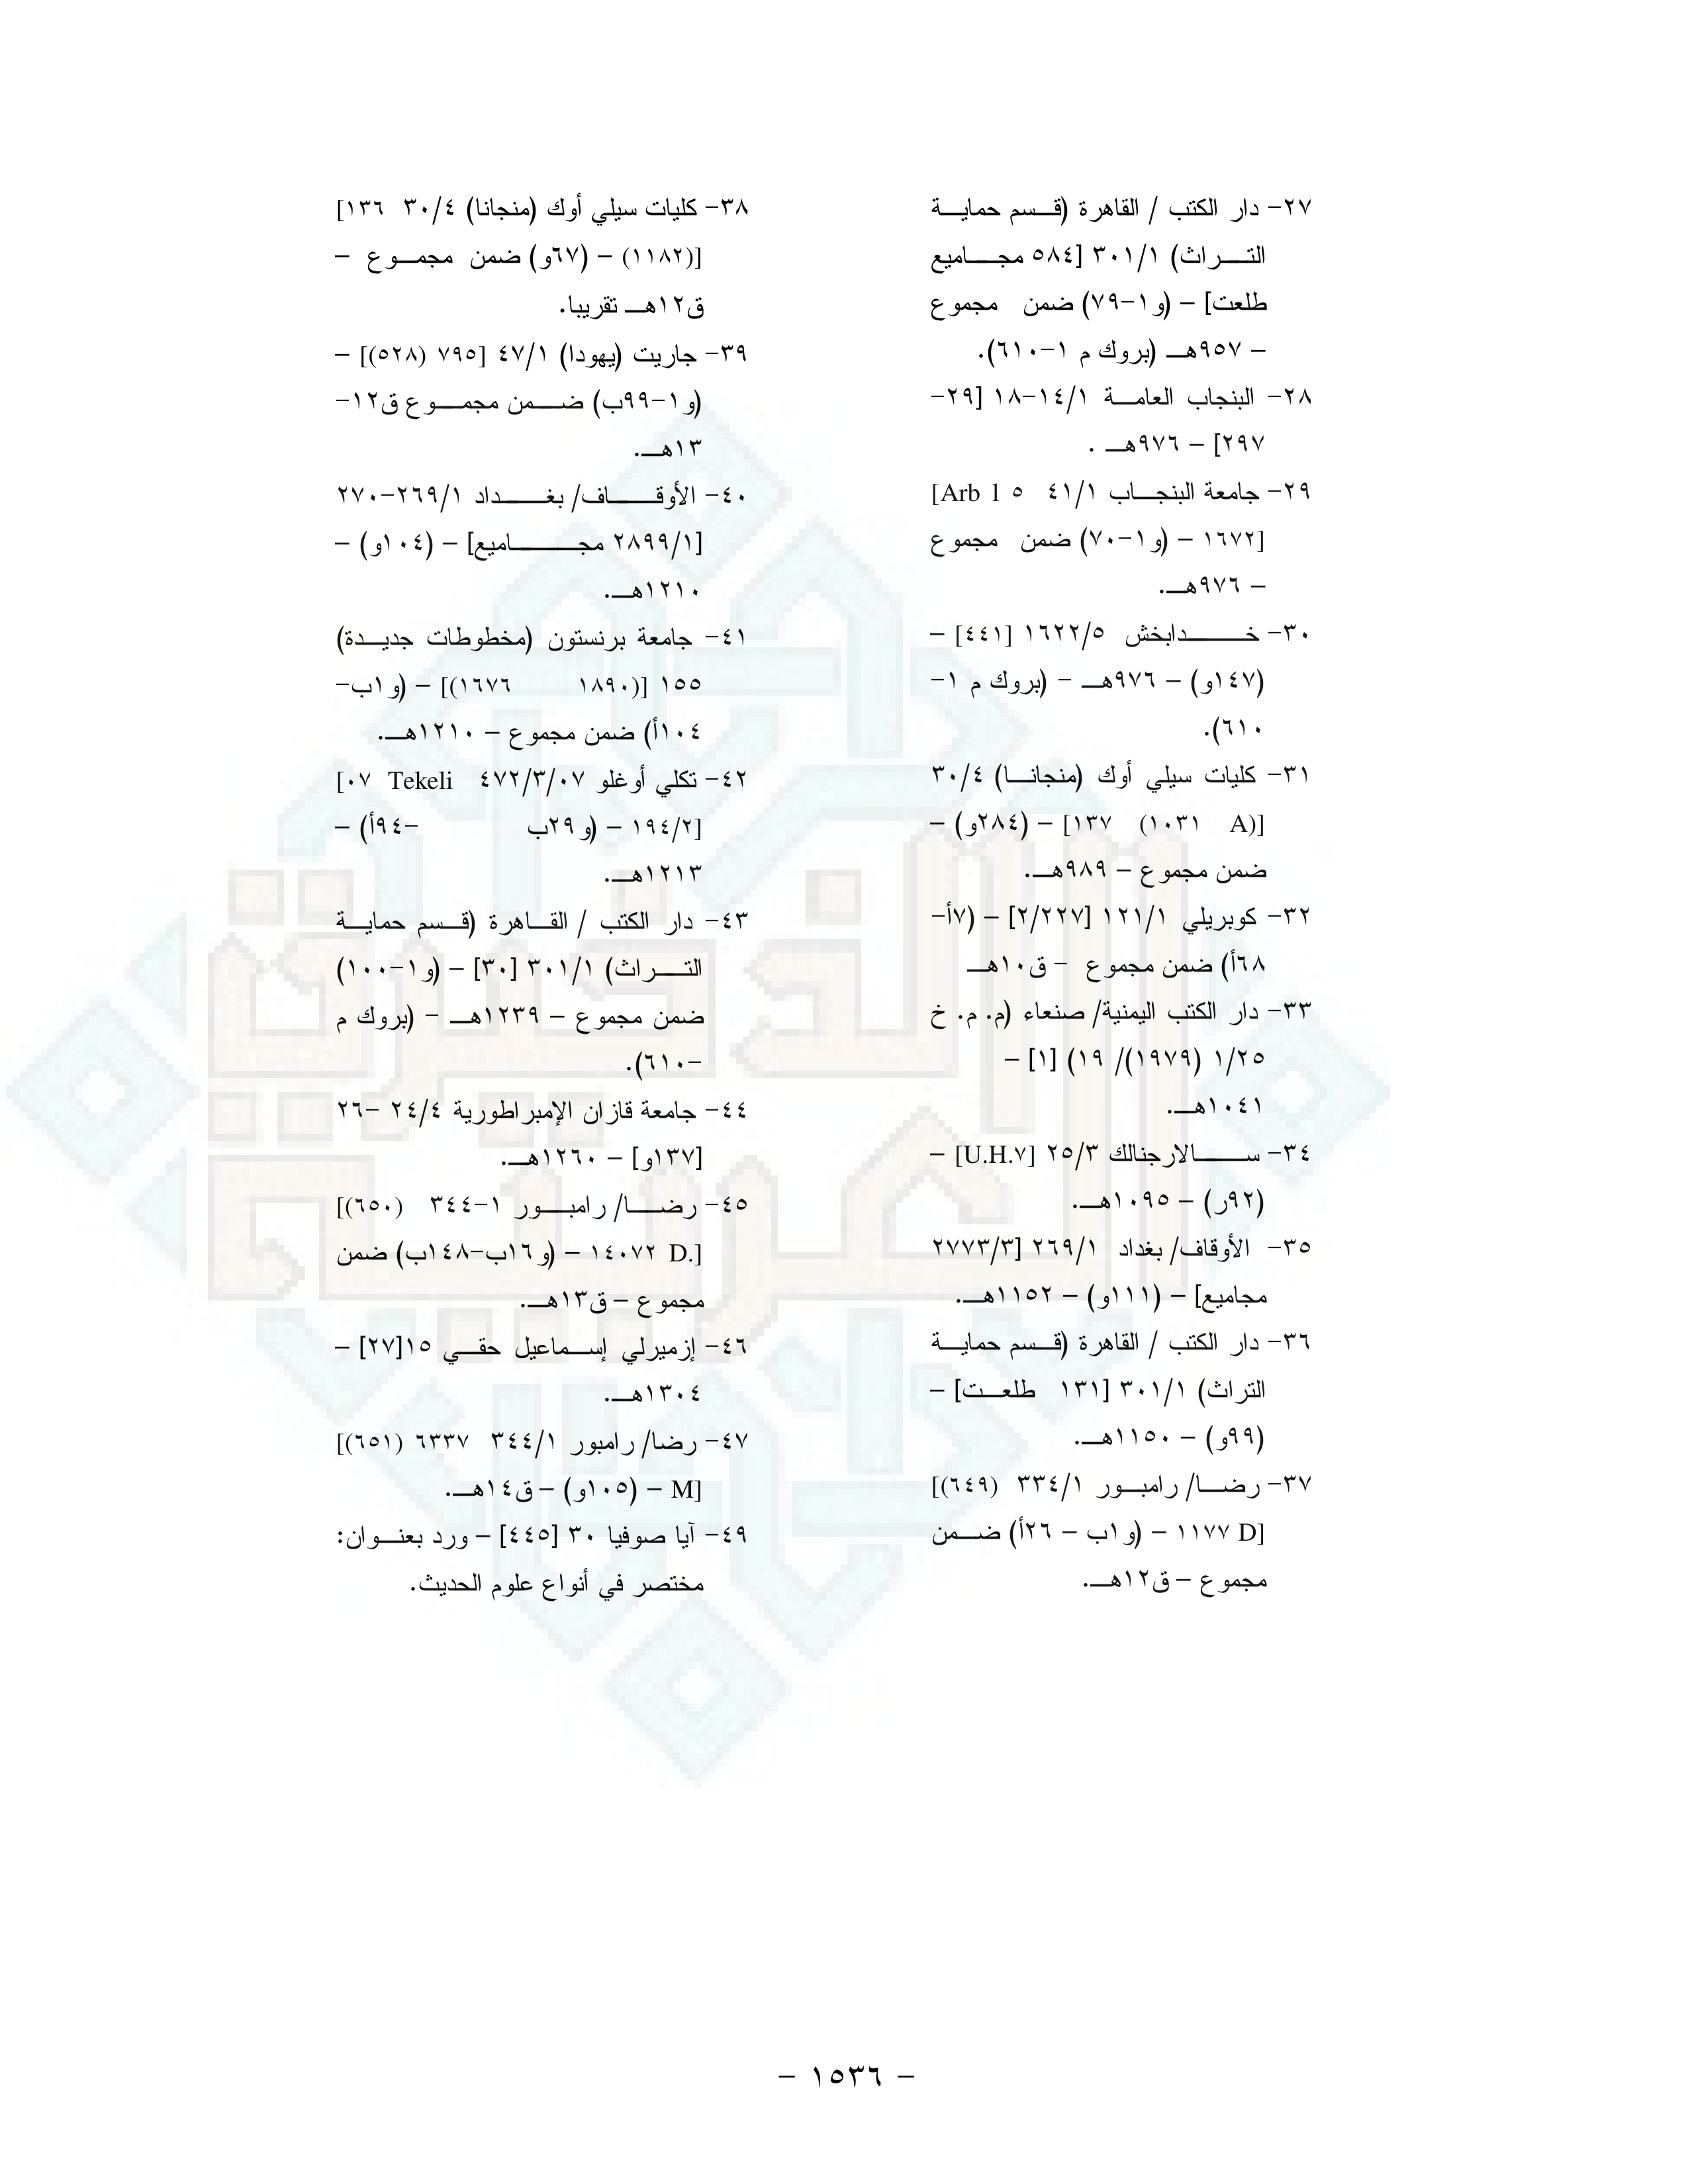 ٢٧- دار الكتب / القاهرة (قسم حماية
التراث) ٣٠١/١ [٥٨٤ مجاميع
طلعت] – (و١-٧٩) ضمن مجموع
– ٩٥٧هـ (بروك م ١-٦١٠).
٢٨- البنجاب العامة ١٤/١-١٨ [٢٩-
٢٩٧] – ٩٧٦هـ .
٢٩- جامعة البنجاب ٤١/١ [Arb l ٥
١٦٧٢] – (و١-٧٠) ضمن مجموع
– ٩٧٦هـ.
٣٠- خدابخش ١٦٢٢/٥ [٤٤١] –
(١٤٧و) – ٩٧٦هـ - (بروك م ١-
٦١٠).
٣١- كليات سيلي أوك (منجانا) ٣٠/٤
[١٣٧ (١٠٣١ A)] – (٢٨٤و) –
ضمن مجموع – ٩٨٩هـ.
٣٢- كوبريلي ١٢١/١ [٢/٢٢٧] – (٧أ-
٦٨أ) ضمن مجموع - ق١٠هـ
٣٣- دار الكتب اليمنية/ صنعاء (م. م. خ
١/٢٥ (١٩٧٩)/ ١٩) [١] –
١٠٤١هـ.
٣٤- سالارجنالك ٢٥/٣ [U.H.٧] –
(٩٢ر) – ١٠٩٥هـ.
٣٥- الأوقاف/ بغداد ٢٦٩/١ [٢٧٧٣/٣
مجاميع] – (١١١و) – ١١٥٢هـ.
٣٦- دار الكتب / القاهرة (قسم حماية
التراث) ٣٠١/١ [١٣١ طلعت] –
(٩٩و) – ١١٥٠هـ.
٣٧- رضا/ رامبور ٣٣٤/١ [(٦٤٩)
١١٧٧ D] – (و١ب – ٢٦أ) ضمن
مجموع – ق١٢هـ.
٣٨- كليات سيلي أوك (منجانا) ٣٠/٤ [١٣٦
(١١٨٢)] – (٦٧و) ضمن مجموع –
ق١٢هـ تقريبا.
٣٩- جاريت (يهودا) ٤٧/١ [٧٩٥ (٥٢٨)] –
(و١-٩٩ب) ضمن مجموع ق١٢-
١٣هـ.
٤٠- الأوقاف/ بغداد ٢٦٩/١-٢٧٠
[٢٨٩٩/١ مجاميع] – (١٠٤و) –
١٢١٠هـ.
٤١- جامعة برنستون (مخطوطات جديدة)
١٥٥ [(١٨٩٠ ١٦٧٦)] – (و١ب-
١٠٤أ) ضمن مجموع – ١٢١٠هـ.
٤٢- تكلي أوغلو ٤٧٢/٣/٠٧ [٠٧ Tekeli
١٩٤/٢] – (و٢٩ب -٩٤أ) –
١٢١٣هـ.
٤٣- دار الكتب / القاهرة (قسم حماية
التراث) ٣٠١/١ [٣٠] – (و١-١٠٠)
ضمن مجموع – ١٢٣٩هـ - (بروك م
-٦١٠).
٤٤- جامعة قازان الإمبراطورية ٢٤/٤ -٢٦
[١٣٧و] – ١٢٦٠هـ.
٤٥- رضا/ رامبور ١-٣٤٤ [(٦٥٠)
١٤٠٧٢ D.] – (و١٦ب-١٤٨ب) ضمن
مجموع – ق١٣هـ.
٤٦- إزميرلي إسماعيل حقي ١٥[٢٧] –
١٣٠٤هـ.
٤٧- رضا/ رامبور ٣٤٤/١ [(٦٥١) ٦٣٣٧
M] – (١٠٥و) – ق١٤هـ.
٤٩- آيا صوفيا ٣٠ [٤٤٥] – ورد بعنوان:
مختصر في أنواع علوم الحديث.
– ١٥٣٦ –